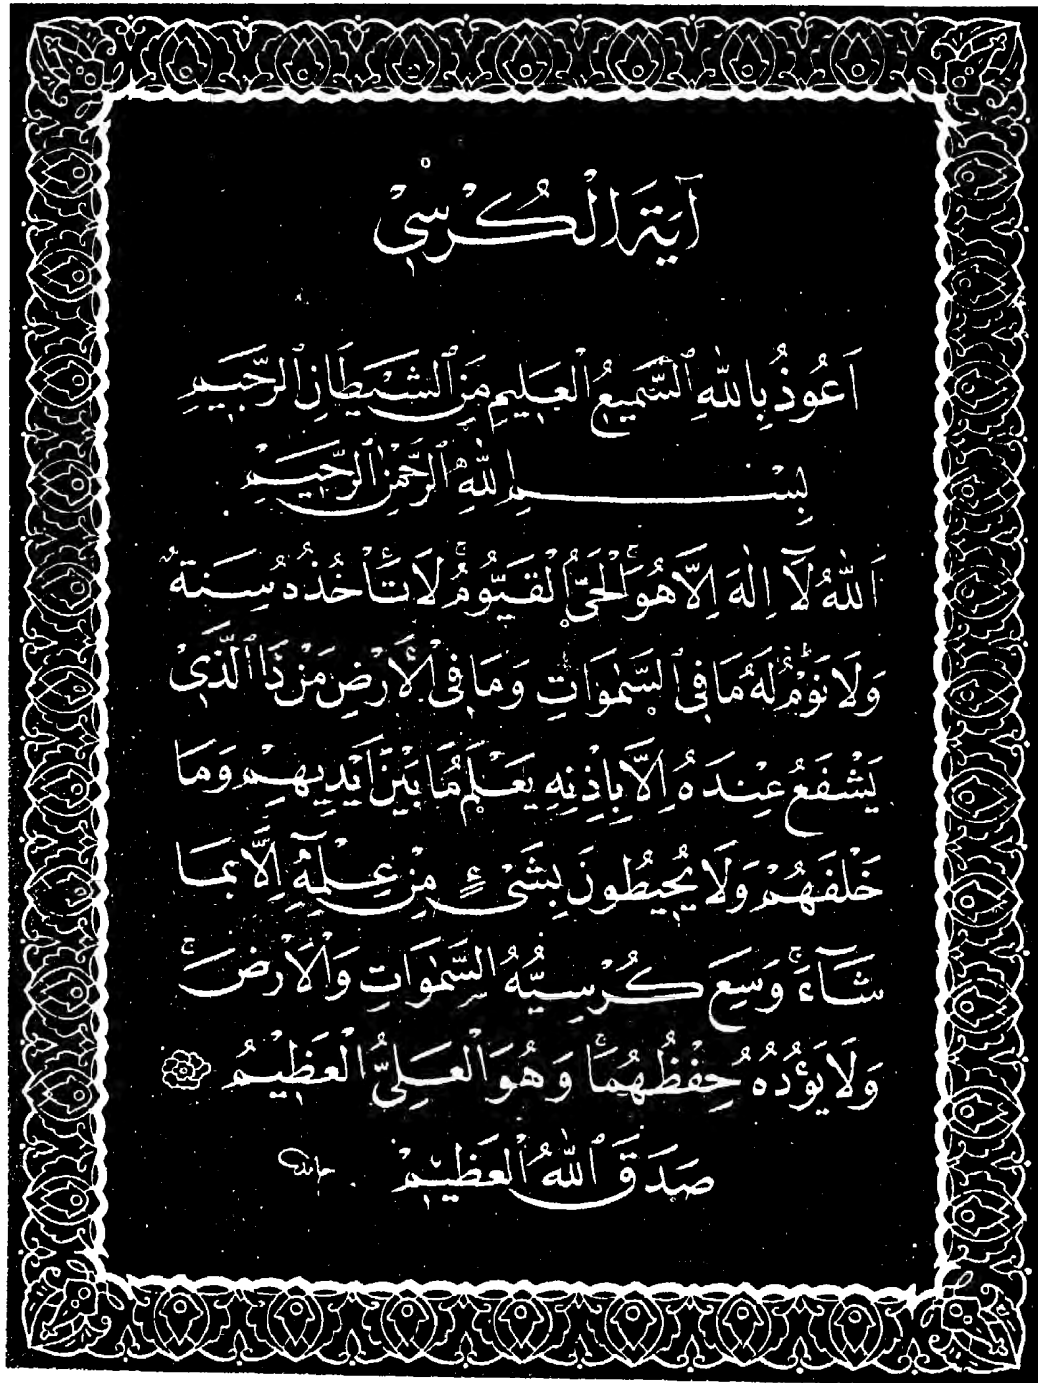 آيَةَ الْكُرْسِيْ
اَعُوذُ بِاللّٰهِ السَّمِيعِ الْعَلِيمِ مِنَ الشَّيْطَانِ الرَّجِيمِ
بِسْمِ اللّٰهِ الرَّحْمٰنِ الرَّحِيمِ
اَللّٰهُ لَآ اِلٰهَ اِلَّا هُوَۚ اَلْحَيُّ الْقَيُّومُۚ لَا تَأْخُذُهُ سِنَةٌ
وَلَا نَوْمٌۜ لَهُ مَا فِي السَّمٰوَاتِ وَمَا فِي الْأَرْضِ مَنْ ذَا الَّذِيْ
يَشْفَعُ عِنْدَهُ اِلَّا بِاِذْنِهِ يَعْلَمُ مَا بَيْنَ اَيْدِيهِمْ وَمَا
خَلْفَهُمْ وَلَا يُحِيطُونَ بِشَيْءٍ مِنْ عِلْمِهِٓ اِلَّا بِمَا
شَآءَۚ وَسِعَ كُرْسِيُّهُ السَّمٰوَاتِ وَالْاَرْضَۚ
وَلَا يَؤُدُهُ حِفْظُهُمَاۚ وَهُوَ الْعَلِيُّ الْعَظِيمُ
صَدَقَ اللّٰهُ الْعَظِيمْ